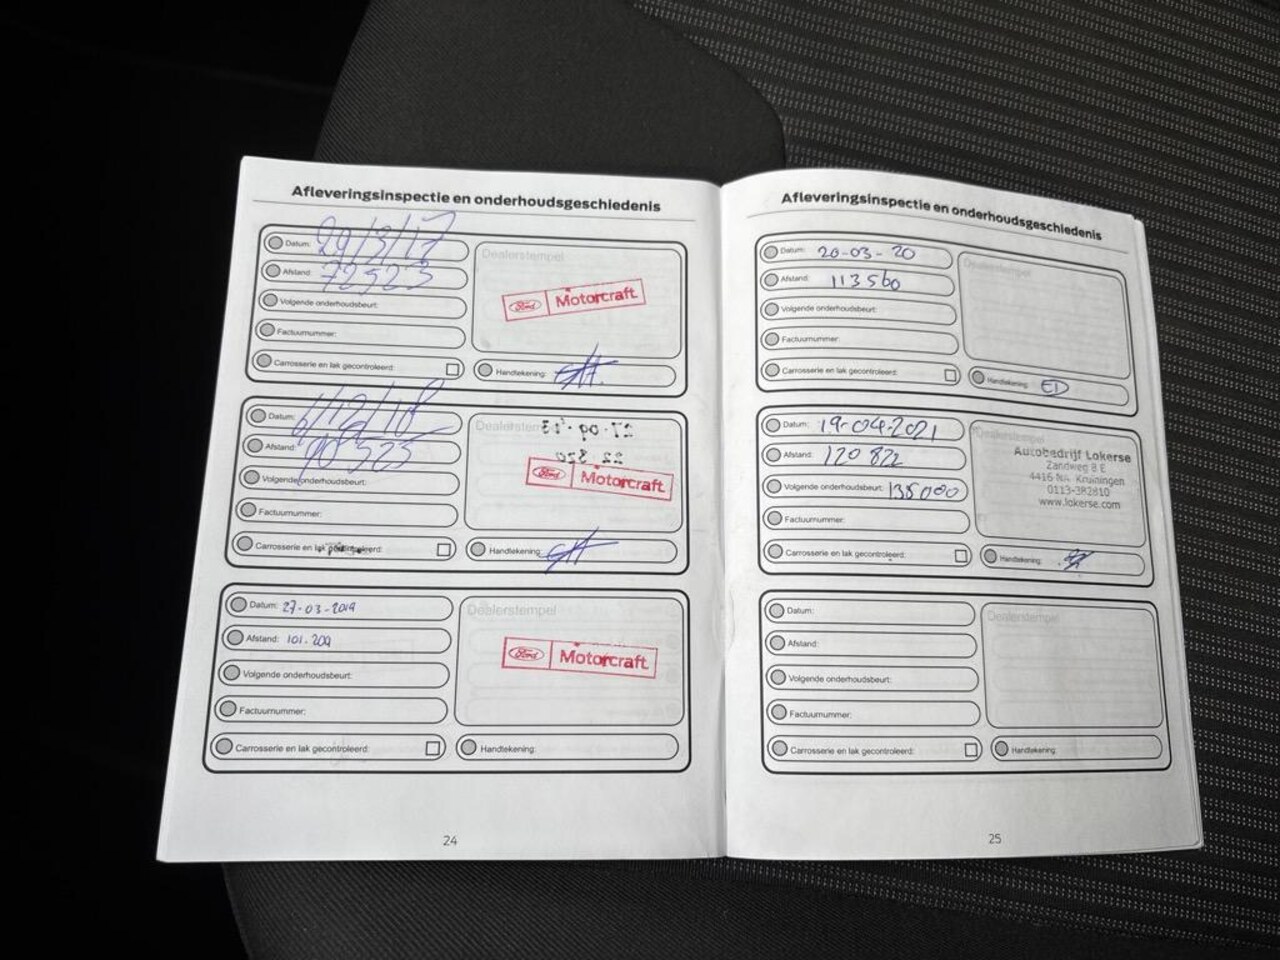 Afleveringsinspectie en onderhoudsgeschiedenis
Datum: 29/3/17
Afstand: 72523
Volgende onderhoudsbeurt:
Factuurnummer:
Carrosserie en lak gecontroleerd:
Dealerstempel
Ford Motorcraft
Handtekening:
Datum: 6/12/18
Afstand: 90323
Volgende onderhoudsbeurt:
Factuurnummer:
Carrosserie en lak gecontroleerd:
Dealerstempel
27-09-13
22.820
Ford Motorcraft
Handtekening:
Datum: 27-03-2019
Afstand: 101.209
Volgende onderhoudsbeurt:
Factuurnummer:
Carrosserie en lak gecontroleerd:
Dealerstempel
Ford Motorcraft
Handtekening:
24
Afleveringsinspectie en onderhoudsgeschiedenis
Datum: 20-03-20
Afstand: 113560
Volgende onderhoudsbeurt:
Factuurnummer:
Carrosserie en lak gecontroleerd:
Dealerstempel
Handtekening: ED
Datum: 19-04-2021
Afstand: 120822
Volgende onderhoudsbeurt: 135000
Factuurnummer:
Carrosserie en lak gecontroleerd:
Dealerstempel
Autobedrijf Lokerse
Zandweg 8 E
4416 NA Kruiningen
0113-382810
www.lokerse.com
Handtekening:
Datum:
Afstand:
Volgende onderhoudsbeurt:
Factuurnummer:
Carrosserie en lak gecontroleerd:
Dealerstempel
Handtekening:
25